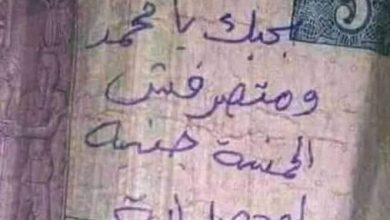 بحبك يا محمد
ومتصرفش
الخمسة جنية